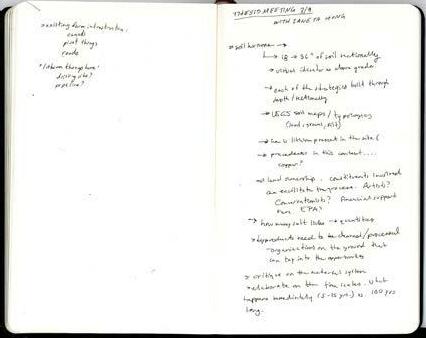 existing farm infrastructure:
canals
pivot things
roads
lithium throughline?
disting site?
pipeline?
THESIS MEETING 2/9
WITH JANETA HONG
soil horizons →
→ 18 → 36" of soil sectionally
→ virtual identity as above grade
→ each of the strategies built through
depth/sectionally
→ USGS soil maps / typologies
(sand, gravel, silt)
→ how is lithium present in the site(
→ precedents in this context....
copper?
→ land ownership.. constituents involved
can facilitate the process. Artists?
Conservationists? Financial support
from EPA?
→ how many salt lake → quantities
byproducts need to be cleaned/processed
- organizations on the ground that
can tap into the opportunities
critique on the material system
elaborate on the time scales. What
happens immediately (5-15 yrs.) vs. 100 yrs
long.